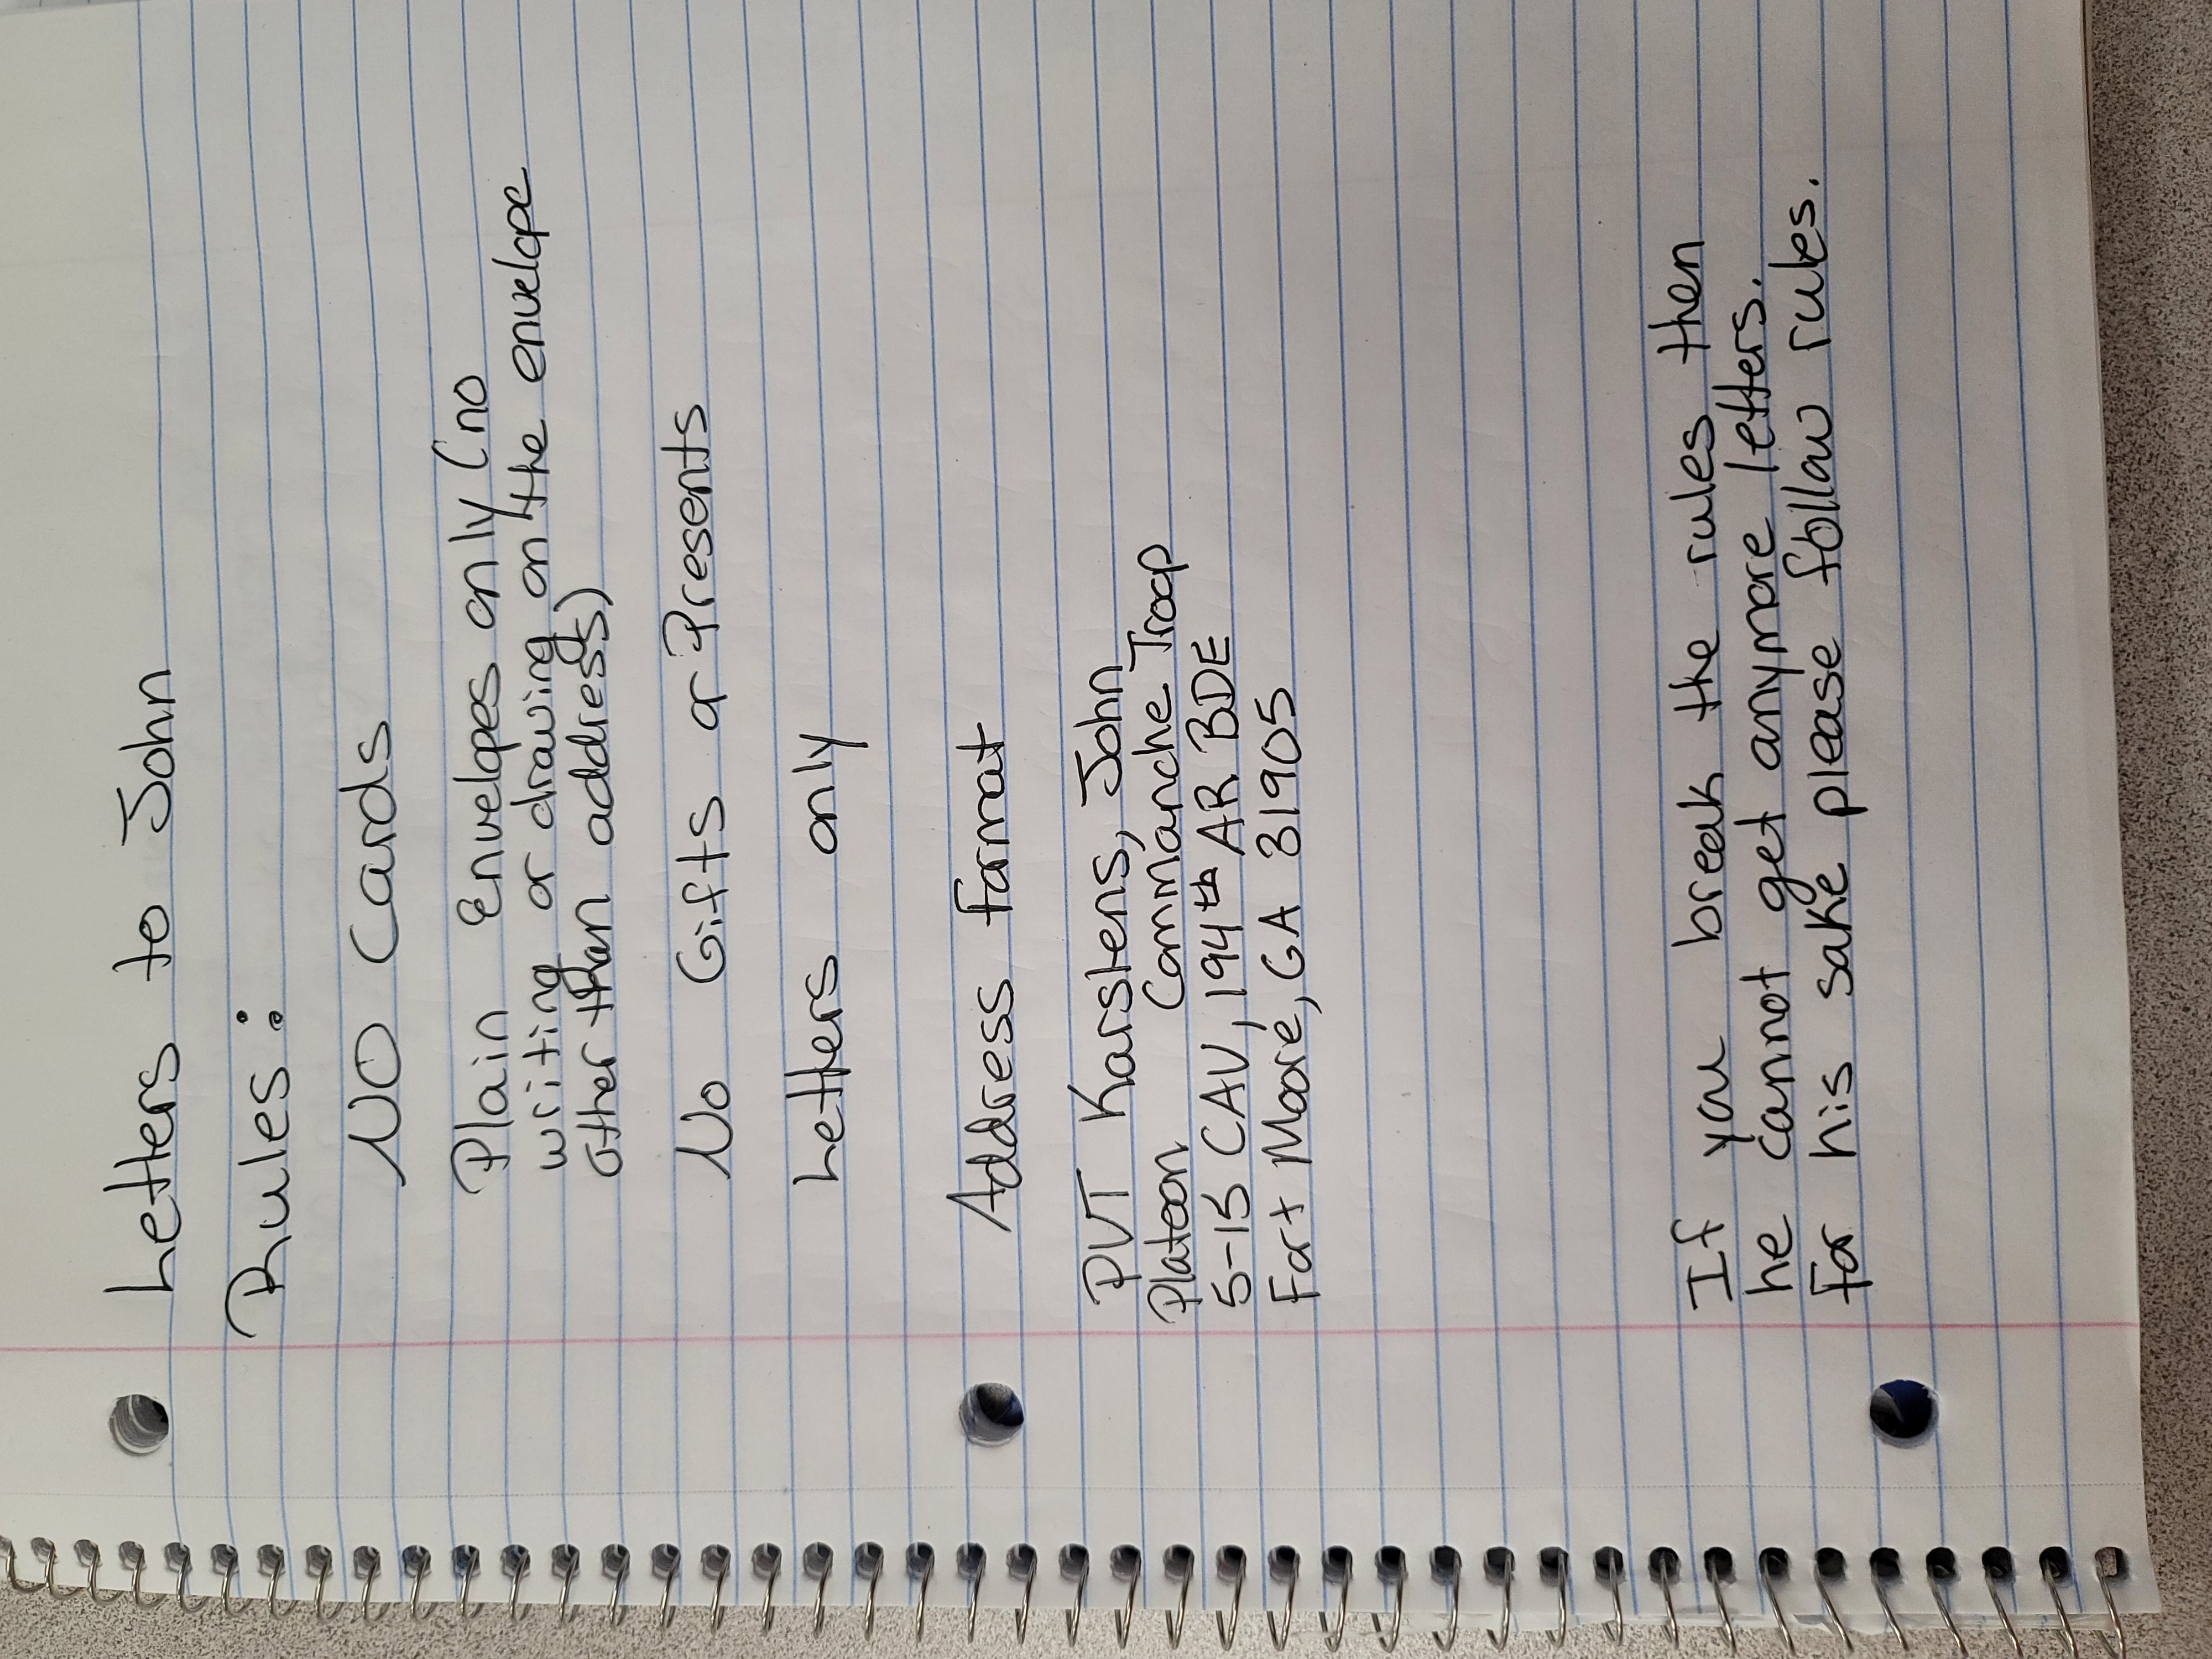 Letters to John
Rules:
NO Cards
Plain Envelopes only (no
writing or drawing on the envelope
other than address)
No Gifts or Presents
Letters only
Address format
PVT Karstens, John
Platoon Commanche Troop
5-15 CAV, 194th AR BDE
Fort Moore, GA 31905
If you break the rules then
he cannot get anymore letters.
For his sake please follow rules.